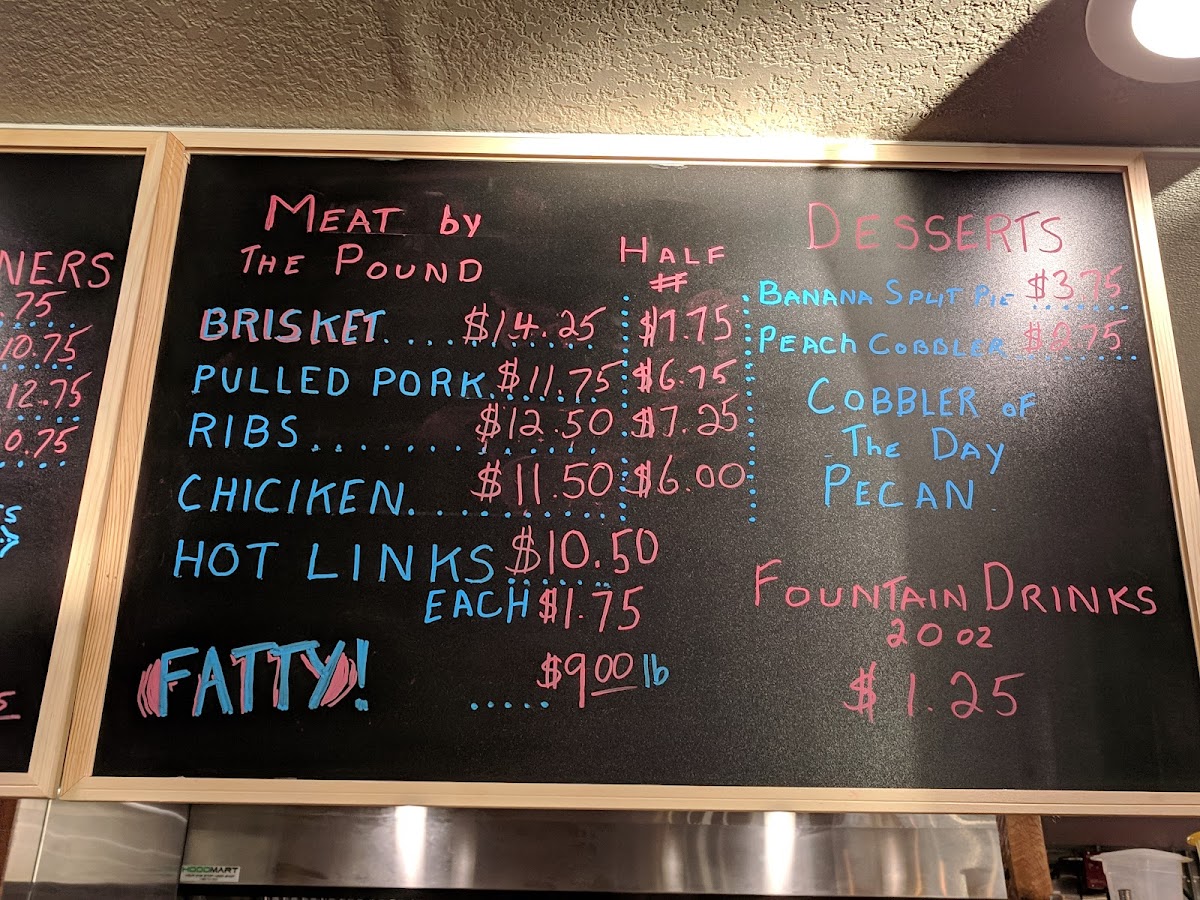 NERS
.75
10.75
12.75
0.75
MEAT by
THE POUND
HALF
#
BRISKET.... $14.25 $7.75
PULLED PORK $11.75 $6.75
RIBS........ $12.50 $7.25
CHICIKEN........ $11.50 $6.00
HOT LINKS $10.50
EACH $1.75
FATTY! ..... $9.00 lb
DESSERTS
BANANA SPLIT PIE $3.75
PEACH COBBLER
COBBLER OF
THE DAY
PECAN
FOUNTAIN DRINKS
20 oz
$1.25
HOODMART